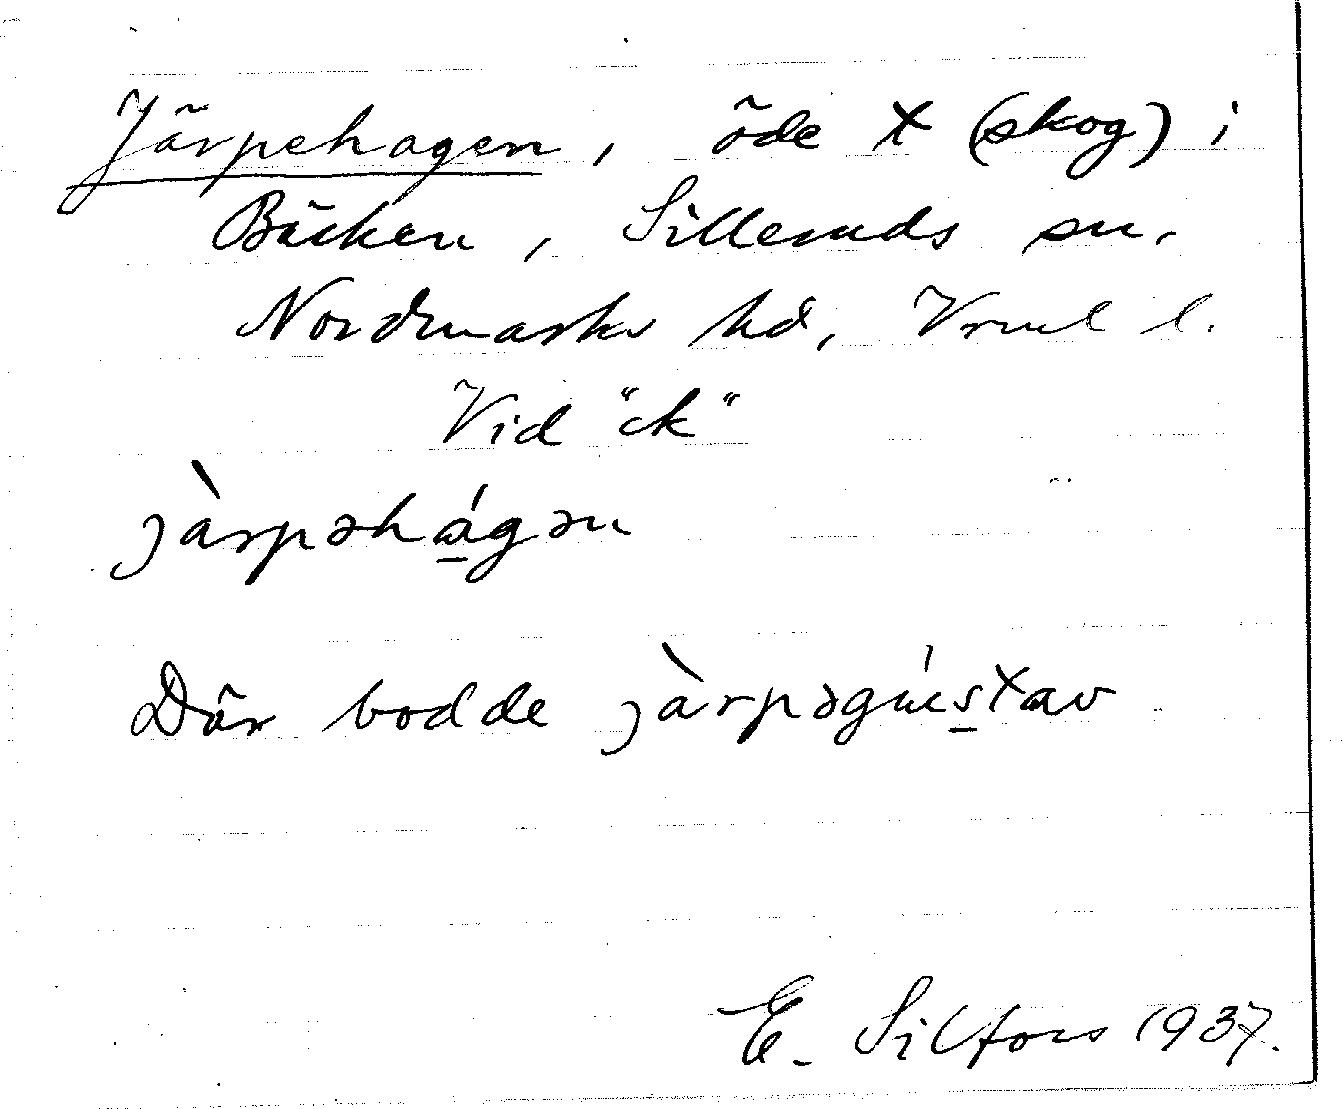 Järpehagen, öde x (skog) i
Bäcken, Silleruds sn.
Nordmarks hd, Vrml l.
Vid "ck"
jàrpəhág̱ən
Där bodde jàrpəgús̱tav
E. Silfors 1937.